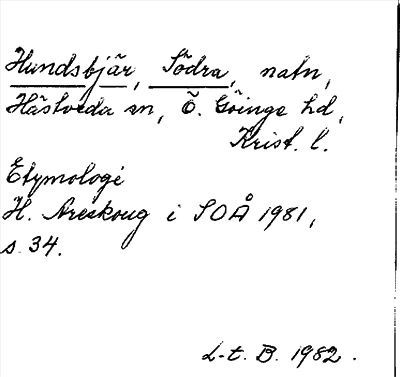 Hundsbjär, Södra, natn,
Hästveda sn, Ö. Göinge hd,
Krist. l.
Etymologi
H. Areskoug i SOÅ 1981,
s. 34.
L-t. B. 1982.